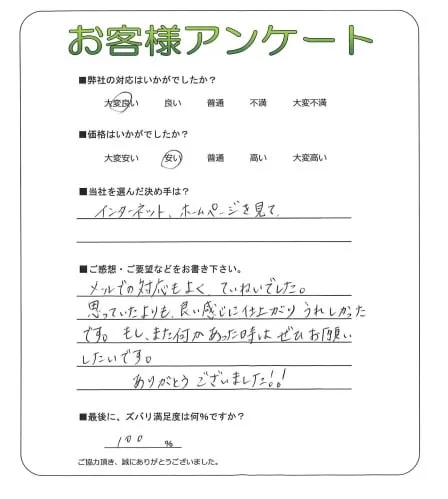 お客様アンケート
■弊社の対応はいかがでしたか?
大変良い 良い 普通 不満 大変不満
■価格はいかがでしたか?
大変安い 安い 普通 高い 大変高い
■当社を選んだ決め手は?
インターネット、ホームページを見て
■ご感想・ご要望などをお書き下さい。
メールでの対応もよく、ていねいでした。
思っていたよりも、良い感じに仕上がり うれしかった
です。 もし、また何かあった時は ぜひ お願い
したいです。
ありがとう ございました!!
■最後に、ズバリ満足度は何%ですか?
100 %
ご協力頂き、誠にありがとうございました。